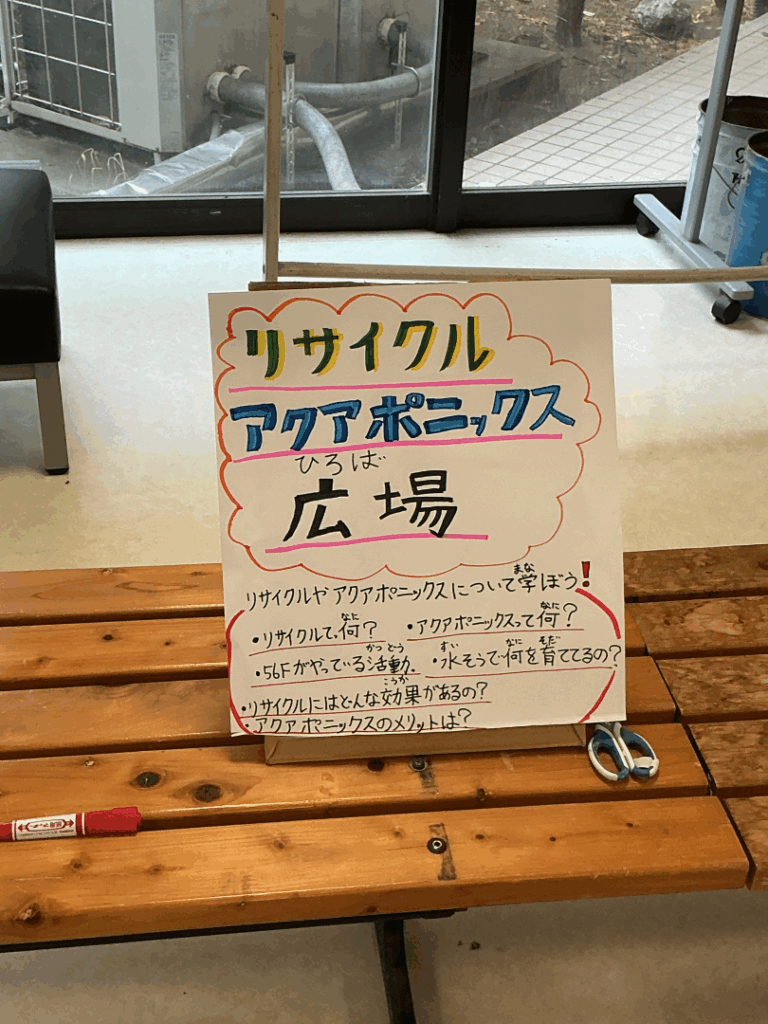 リサイクル
アクアポニックス
ひろば
広場
リサイクルやアクアポニックスについて学ぼう!
まな
・リサイクルって何?
なに
・アクアポニックスって何?
なに
・56Fがやっている活動.
かつどう
・水そうで何を育ててるの?
すい なに そだ
・リサイクルにはどんな効果があるの?
こうか
・アクアポニックスのメリットは?